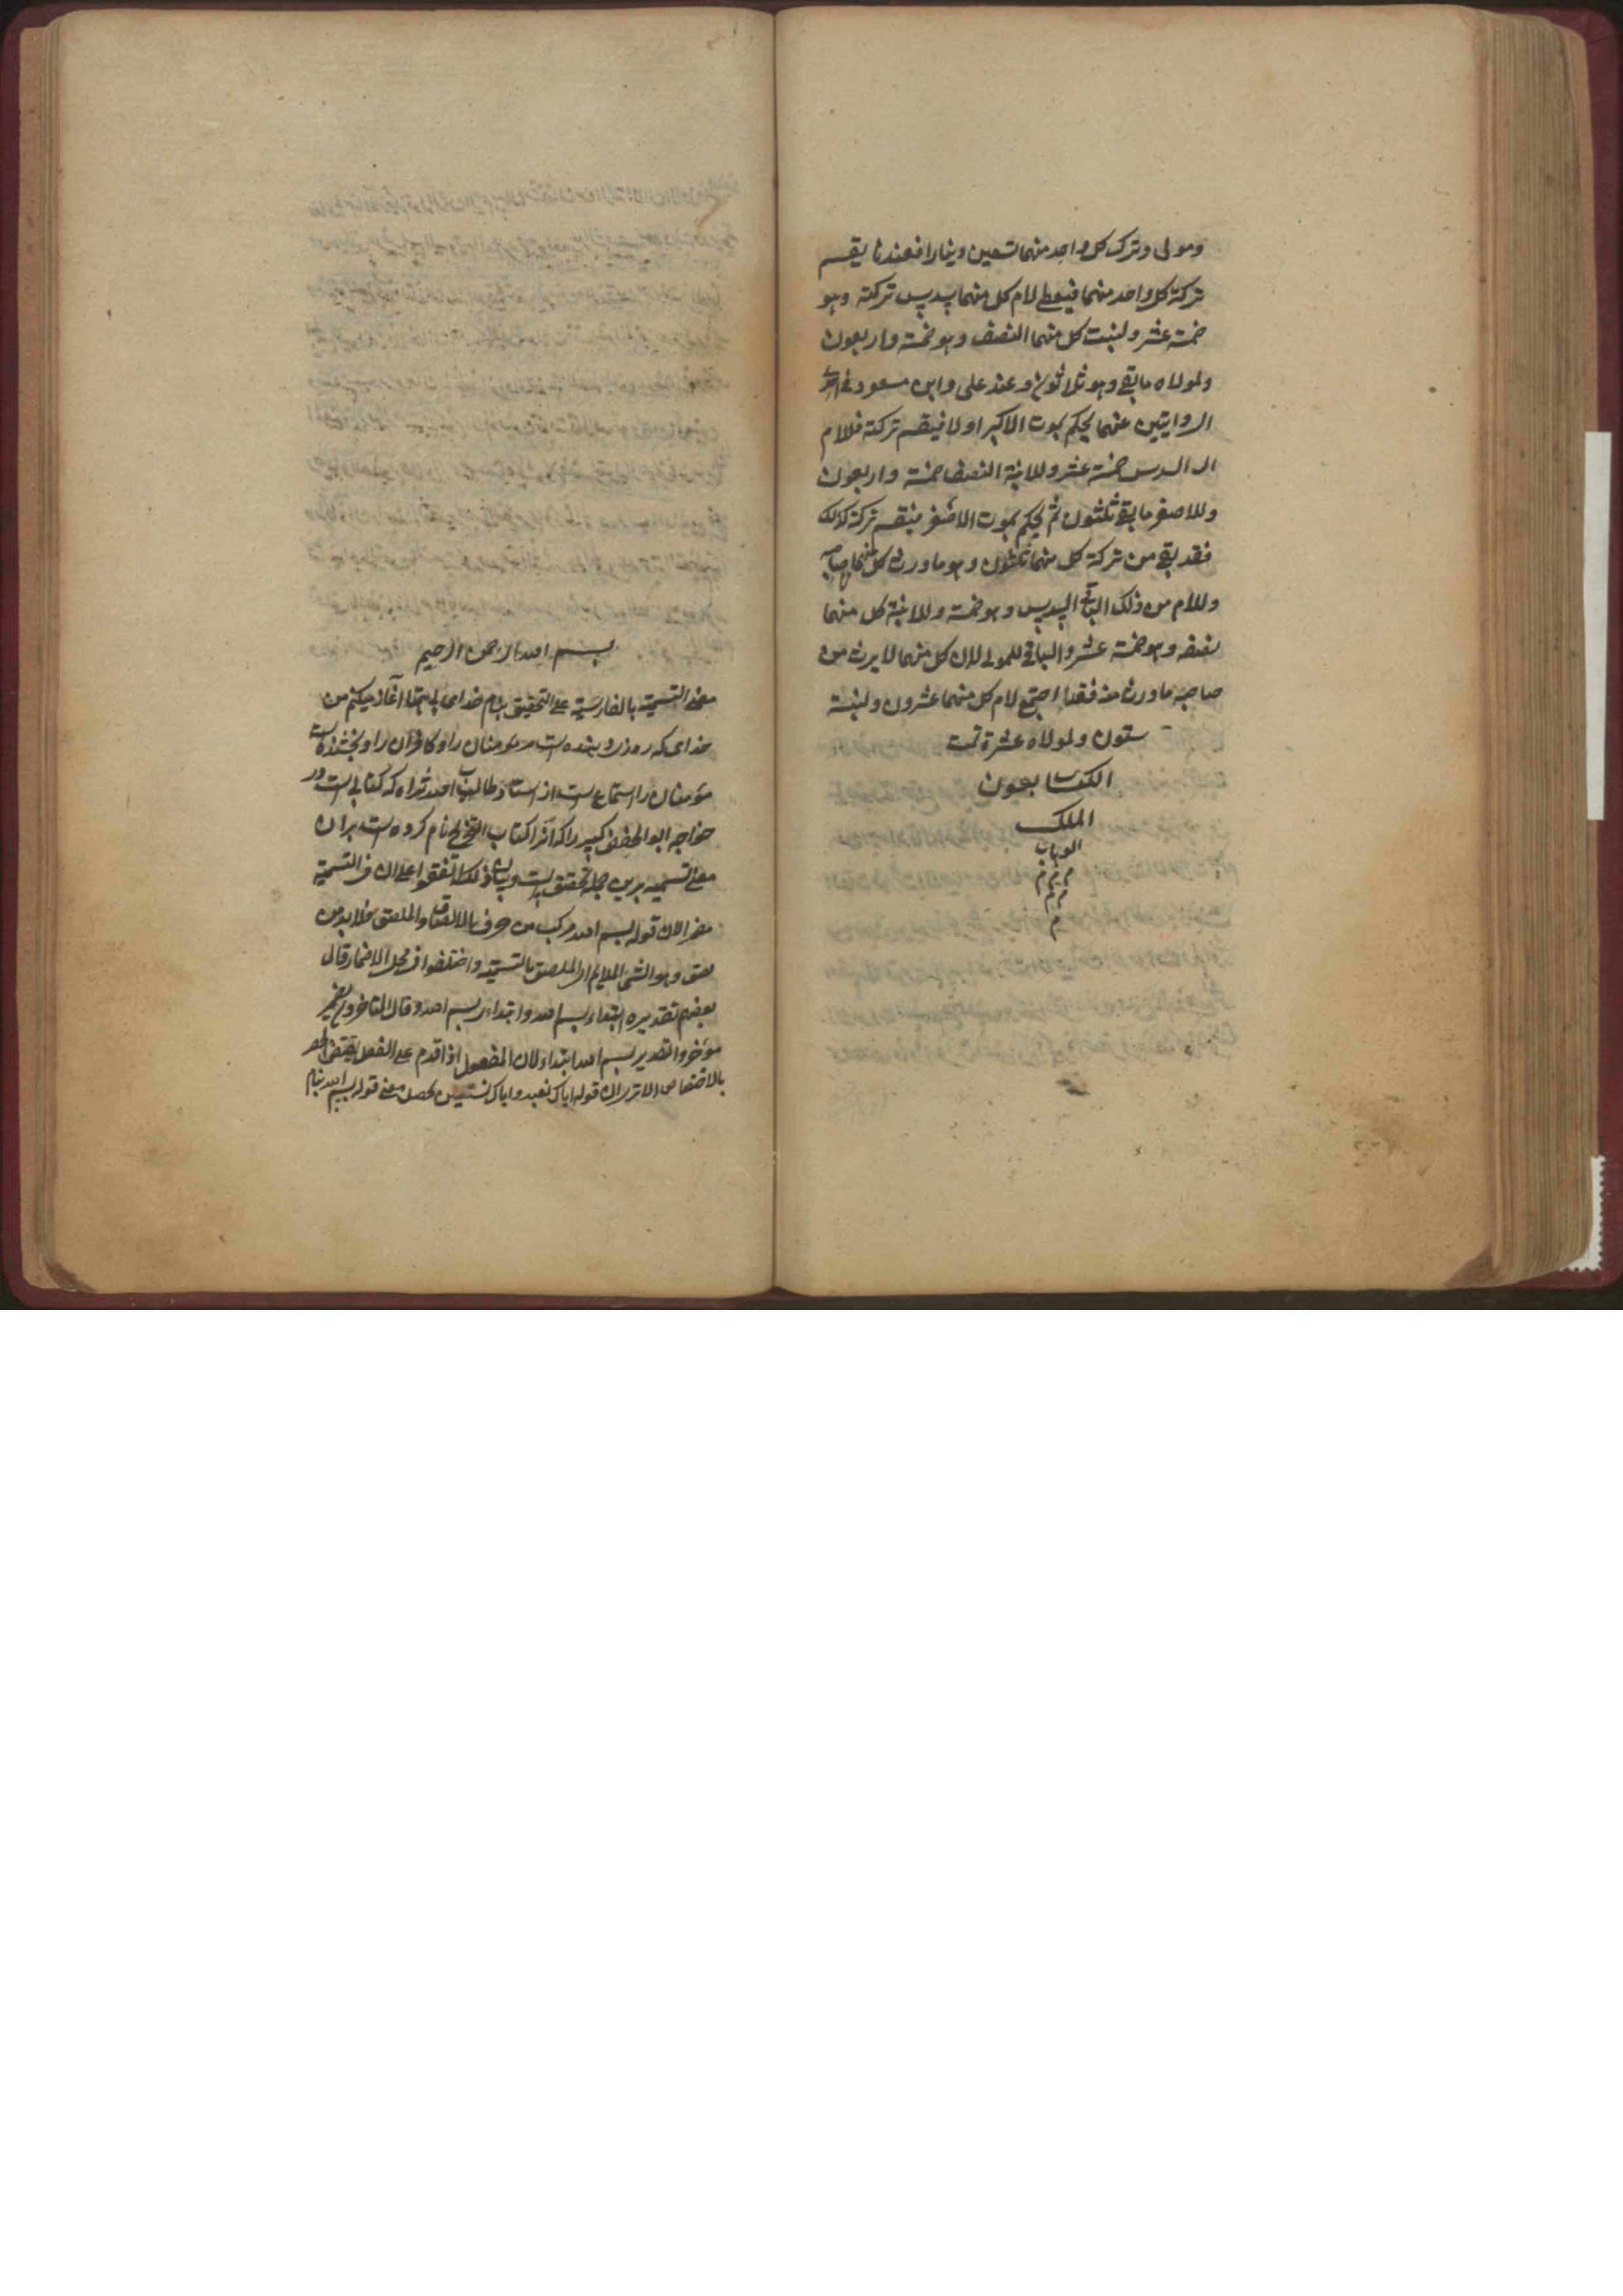 ومولى وترك كل واحد منهما تسعين دينارا فعندنا يقسم
تركة كل واحد منهما فيعطى لام كل منهما سدس تركته وهو
خمسة عشر ولبنت كل منهما النصف وهو خمسة واربعون
ولمولاه ما بقى وهو ثلاثون وعند على وابن مسعود فى احدى
الروايتين عنهما يحكم بموت الاكبر اولا فيقسم تركته فللام
السدس خمسة عشر وللابنة النصف خمسة واربعون
وللاصغر ما بقى ثلثون ثم يحكم بموت الاصغر فيقسم تركته كذلك
فقد بقى من تركة كل منهما ثلثون وهو ما ورث كل منهما صاحبه
وللام من ذلك الباقى السدس وهو خمسة وللابنة كل منهما
نصفه وهو خمسة عشر والباقى للمولى لان كل منهما لا يرث من
صاحبه ما ورث منه فقد اجتمع لام كل منهما عشرون ولبنته
ستون ولمولاه عشرة تمت
الكتاب بعون
الملك
الوهاب
م م م
م م
م
بسم الله الرحمن الرحيم
معنى التسمية بالفارسية على التحقيق بنام خداى با همتا آغاز ميكنم من
خداى كه روزى دهنده است مر مومنان را وكافران را وبخشنده است
مؤمنان را استماع است از استاد طالب الله ثراه كه كتابى است در
خواجه ابو الحفص كبير را كه آنرا كتاب نام كرده است بران
معنى التسميه برين جمله تحقيق است وبيان ذلك اتفقوا على ان فى التسمية
مضمرا لان قوله بسم الله مركب من حرف بالالتقات والملصق فلا بد من
لصق وهو الشئ الملايم الملصق بالتسمية واختلفوا فى محل الاضمار قال
بعضهم تقديره ابتداء بسم الله وابتداء بسم الله وقال المتاخرون يضمر
مؤخرا والتقدير بسم الله ابتداء لان المفعول اذا قدم على الفعل يقتضى الحصر
بالاختصاص الا ترى ان قوله اياك نعبد واياك نستعين فحصل معنى قوله بسم الله بنام